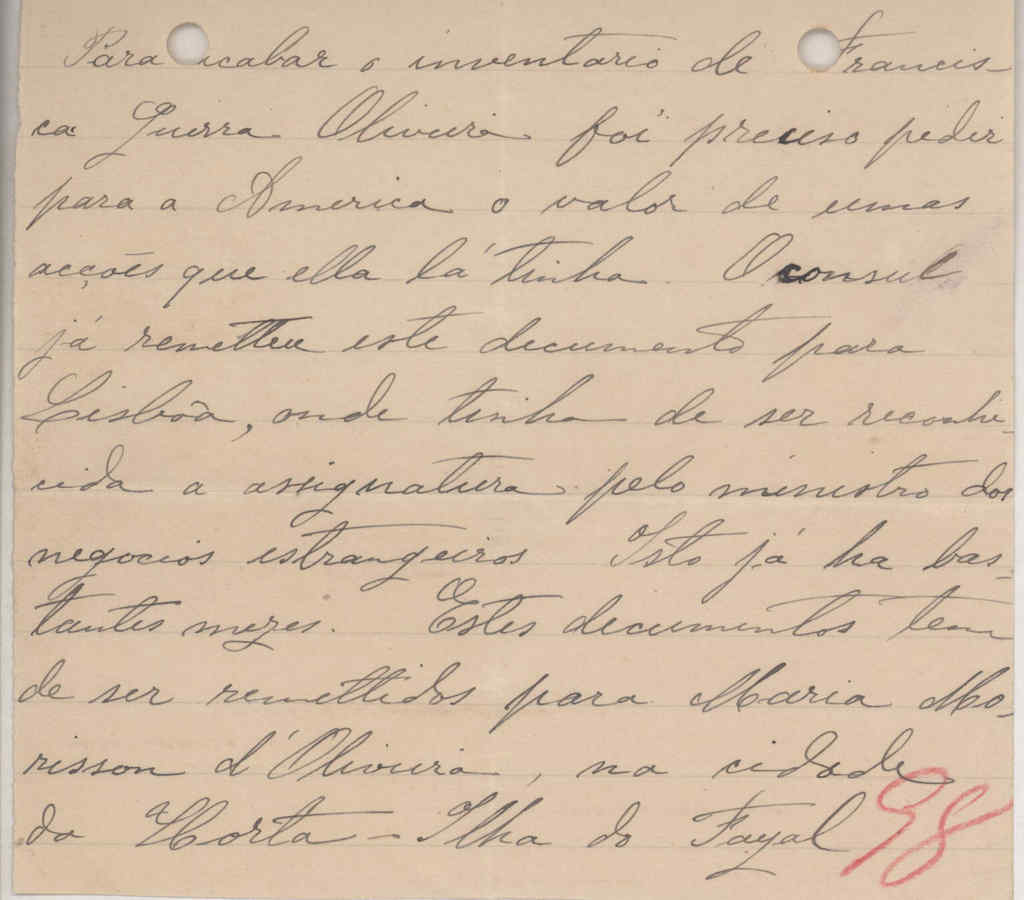 Para acabar o inventario de Francis-
ca Guerra Oliveira foi preciso pedir
para a America o valor de umas
acções que ella lá tinha. O consul
já remetteu este documento para
Lisbôa, onde tinha de ser reconhe-
cida a assignatura pelo ministro dos
negocios estrangeiros Isto já ha bas-
tantes mezes. Estes documentos tem
de ser remettidos para Maria Mo-
risson d'Oliveira, na cidade
da Horta - Ilha do Fayal
98